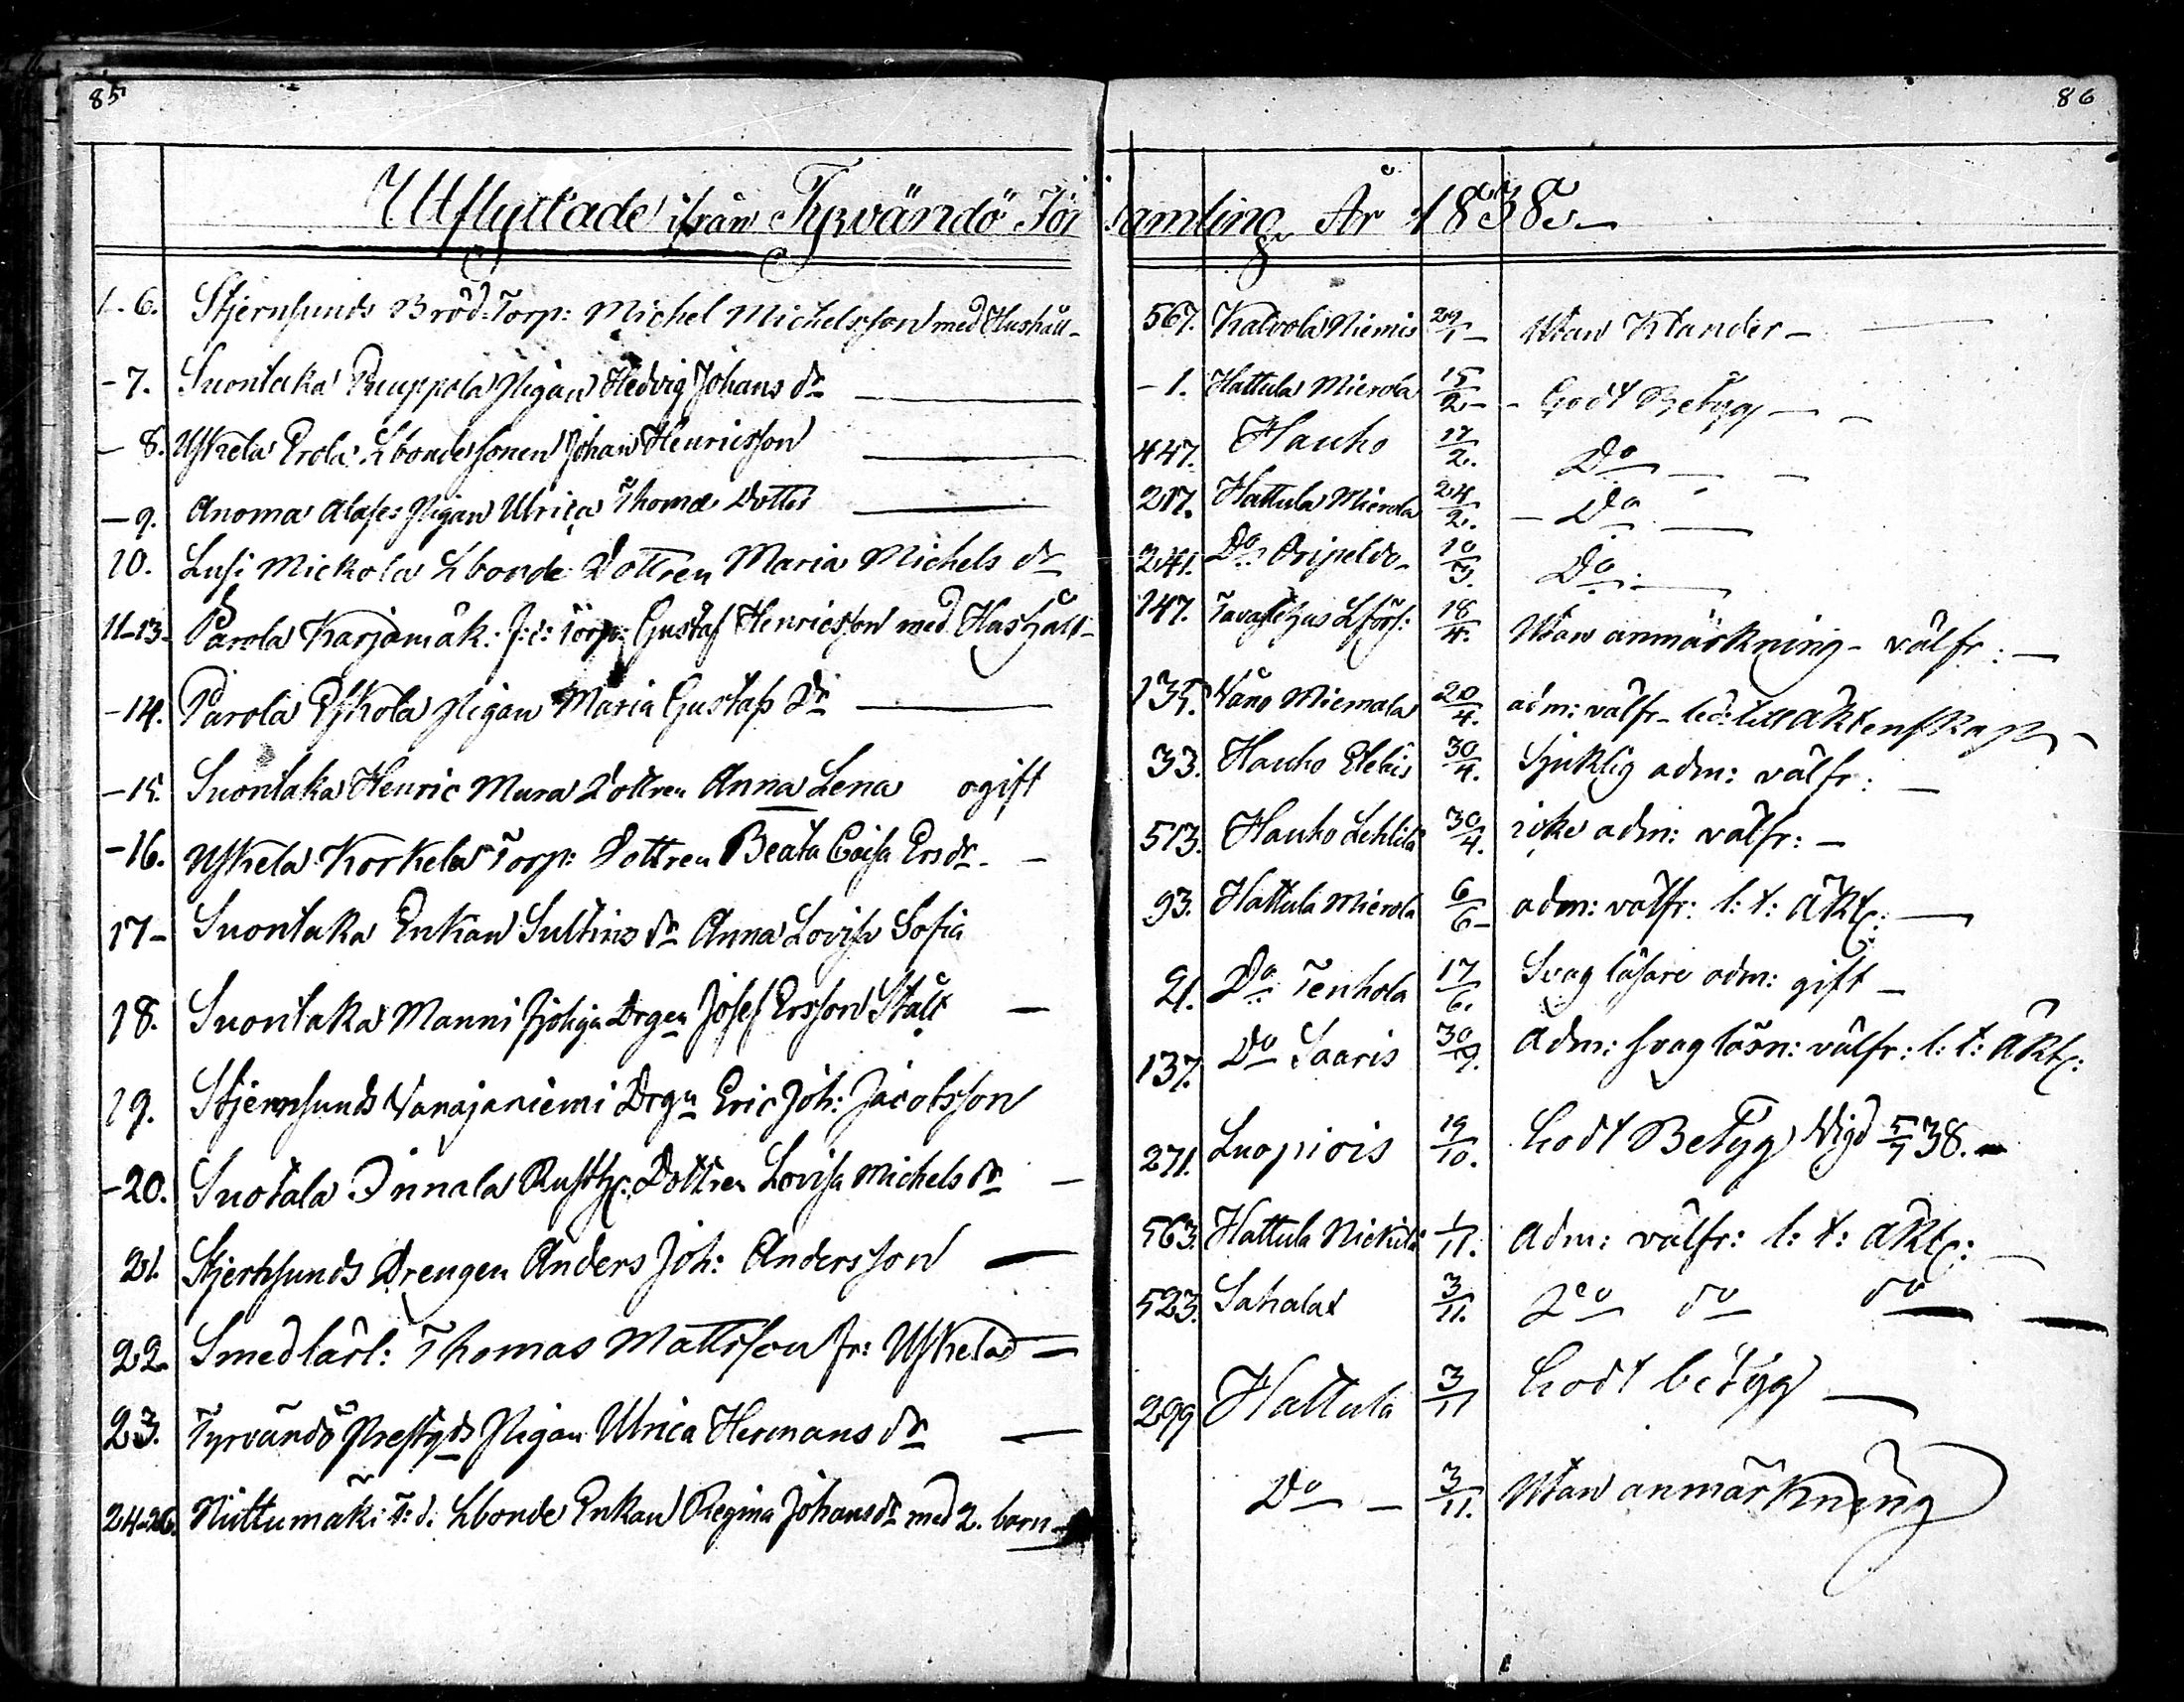 85
86
Utflyttade ifrån Tyrvändö Församling År 1838.
1-6. Stjernsunds Bröd. Torp: Michel Michelsson med Hushåll- 567. Kalvola Niemis 29/1 - Utan Klander -
-7. Suontaka Ruuppola Pigan Hedvig Johans dr - 1. Hattula Mierola 15/2 - Godt Betyg -
-8. Uskela Erola Lbondesonen Johan Henricsson 447. Hauho 17/2. Do
-9. Anoma Alase: Pigan Ulrica Thomæ Dotter 217. Hattula Mierola 24/2. - Do
10. Lusi Mickola Lbonde Dottren Maria Michels dr 241. Do 10/3. Do
11-13 Parola Karjamäk: Torp: Gustaf Henricsson med Hushåll- 147. Tavastehus Lförs: 18/4. Utan anmärkning - välfr: -
-14. Parola Eskola Pigan Maria Gustafs Dr 135. Våno Miemala 20/4. adm: välfr- led: till äktenskap -
-15. Suontaka Henric Mura Dottren Anna Lena ogift 33. Hauho Eteläis 30/4. Sjuklig adm: välfr: -
-16. Uskela Korkela Torp: Dottren Beata Caisa Ersdr - 513. Hauho Lehtitä 30/4. icke adm: välfr: -
17- Suontaka Enkan Sultins dr Anna Lovisa Sofia 93. Hattula Mierola 6/6 - adm: välfr: l: t: äkt: -
18. Suontaka Manni Drgen Josef Ersson Stålt - 21. Do Tenhola 17/6. Svag läsare adm: gift -
19. Stjernsunds Vanajaniemi Drgn Eric Joh: Jacobsson 137. Do Saaris 30/9. Adm: svag läsn: välfr: l: t: äkt:
-20. Suotala Innala Rusth: Dottren Lovisa Michels dr - 271. Luopiois 19/10. Godt Betyg Vigd 5/7 38. -
21. Stjernsunds Drengen Anders Joh: Andersson - 563. Hattula Nickilä 1/11. Adm: välfr: l: t: äkt: -
22 Smedlärl: Thomas Mattsson fr: Uskela - 523. Sahalax 3/11. Do do do
23. Tyrvändö Prestgds Pigan Ulrica Hermans dr - 299 Hattula 3/11 Godt betyg -
24-26. Niittumäki Lbonde Enkan Regina Johansdr med 2. barn - Do - 3/11. Utan anmärkning